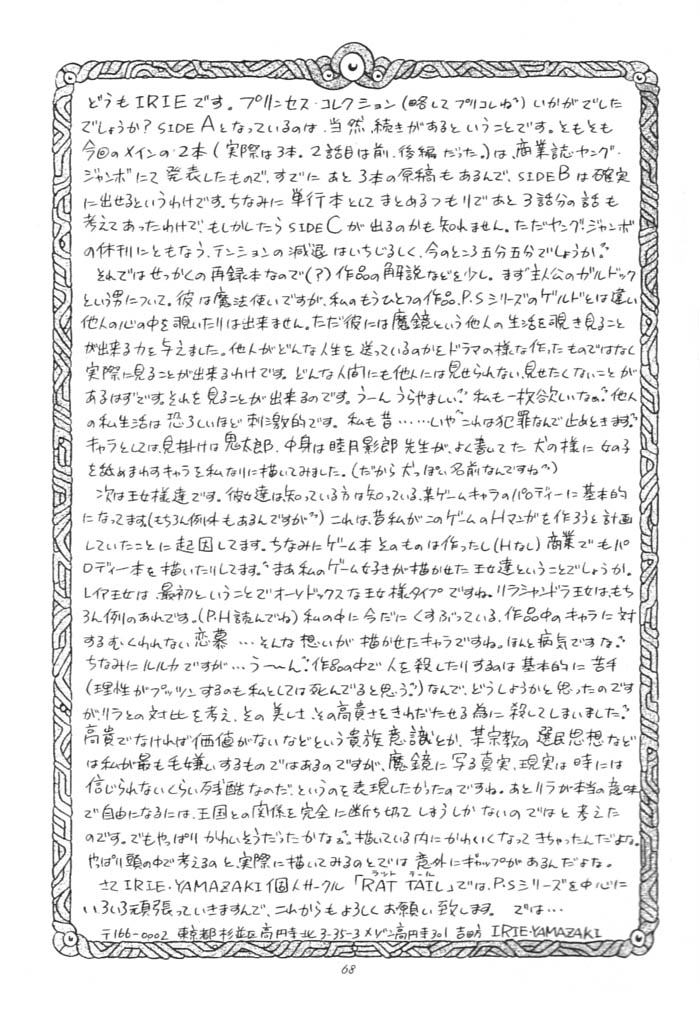 どうもIRIEです。プリンセス・コレクション(略してプリコレね〃)いかがでした
でしょうか?SIDE Aとなっているのは、当然、続きがあるということです。ともとも
今回のメインの2本(実際は3本。2話目は前、後編だった。)は、商業誌・ヤング・
ジャンボにて発表したもので、すでにあと3本の原稿もあるんで、SIDE Bは確実
に出せるというわけです。ちなみに単行本としてまとめるつもりであと3話分の話も
考えてあったわけで、もしかしたらSIDE Cが出るのかも知れません。ただヤング・ジャンボ
の休刊にともなう、テンションの減退はいちじるしく、今のところ五分五分でしょうか〃
それではせっかくの再録本なので(?)作品の解説などを少し。まず主人公のガルドック
という男について。彼は魔法使いですが、私のもうひとつの作品、P.Sシリーズのゲルドとは違い
他人の心の中を覗いたりは出来ません。ただ彼には魔鏡という他人の生活を覗き見ること
が出来る力を与えました。他人がどんな人生を送っているのかをドラマの様な作ったものではなく
実際に見ることが出来るわけです。どんな人間にも他人には見せられない、見せたくないことが
あるはずです。それを見ることが出来るのです。うーんうらやましい〃私も一枚欲しいなぁ〃他人
の私生活は恐ろしいほど刺激的です。私も昔……いや〃これは犯罪なんで止めときます〃
キャラとしては、見掛けは鬼太郎、中身は睦月影郎先生が、よく書いてた犬の様に女の子
を舐めまわすキャラを私なりに描いてみました。(だから犬っぽい名前なんですね〃)
次は王女様達です。彼女達は知っている方は知っている、某ゲームキャラのパロディーに基本的
になってます(もちろん例外もあるんですが〃)これは、昔私がこのゲームのHマンガを作ろうと計画
していたことに起因してます。ちなみにゲーム本そのものは作ったし(Hなし)商業でもパ
ロディー本を描いたりしてます〃まあ私のゲーム好きが描かせた王女達ということでしょうか。
レイア王女は最初ということでオーソドックスな王女様タイプですね。リラシャンドラ王女は、もち
ろん例のあれです。(P.H読んでね)私の中に今だにくすぶっている、作品中のキャラに対
するむくわれない恋慕…そんな想いが描かせたキャラですね。ほんと病気ですな〃
ちなみにルルカですが…う〜ん〃作品の中で人を殺したりするのは基本的に苦手
(理性がプッツンするのも私としては死んでると思う〃)なんで、どうしようかと思ったのです
が、リラとの対比を考え、その美しさ、その高貴さをきわだたせる為に殺してしまいました〃
高貴でなければ価値がないなどという貴族意識とか、某宗教の選民思想など
は私が最も毛嫌いするものではあるのですが、魔鏡に写る真実、現実は時には
信じられないくらい残酷なのだ、というのを表現したかったのですね。あとリラが本当の意味
で自由になるには、王国との関係を完全に断ち切ってしまうしかないのではと考えた
のです。でもやっぱりかわいそうだったかなぁ〃描いている内にかわいくなってきちゃったんだよな。
やっぱり頭の中で考えるのと、実際に描いてみるのとでは意外にギャップがあるんだよな。
さてIRIE・YAMAZAKI個人サークル「RAT TAIL」では、P.Sシリーズを中心に
ラット テール
いろいろ頑張っていきますんで、これからもよろしくお願い致します。 では…
〒166-0002 東京都杉並区高円寺北3-35-3メゾン高円寺301 吉田方 IRIE・YAMAZAKI
68